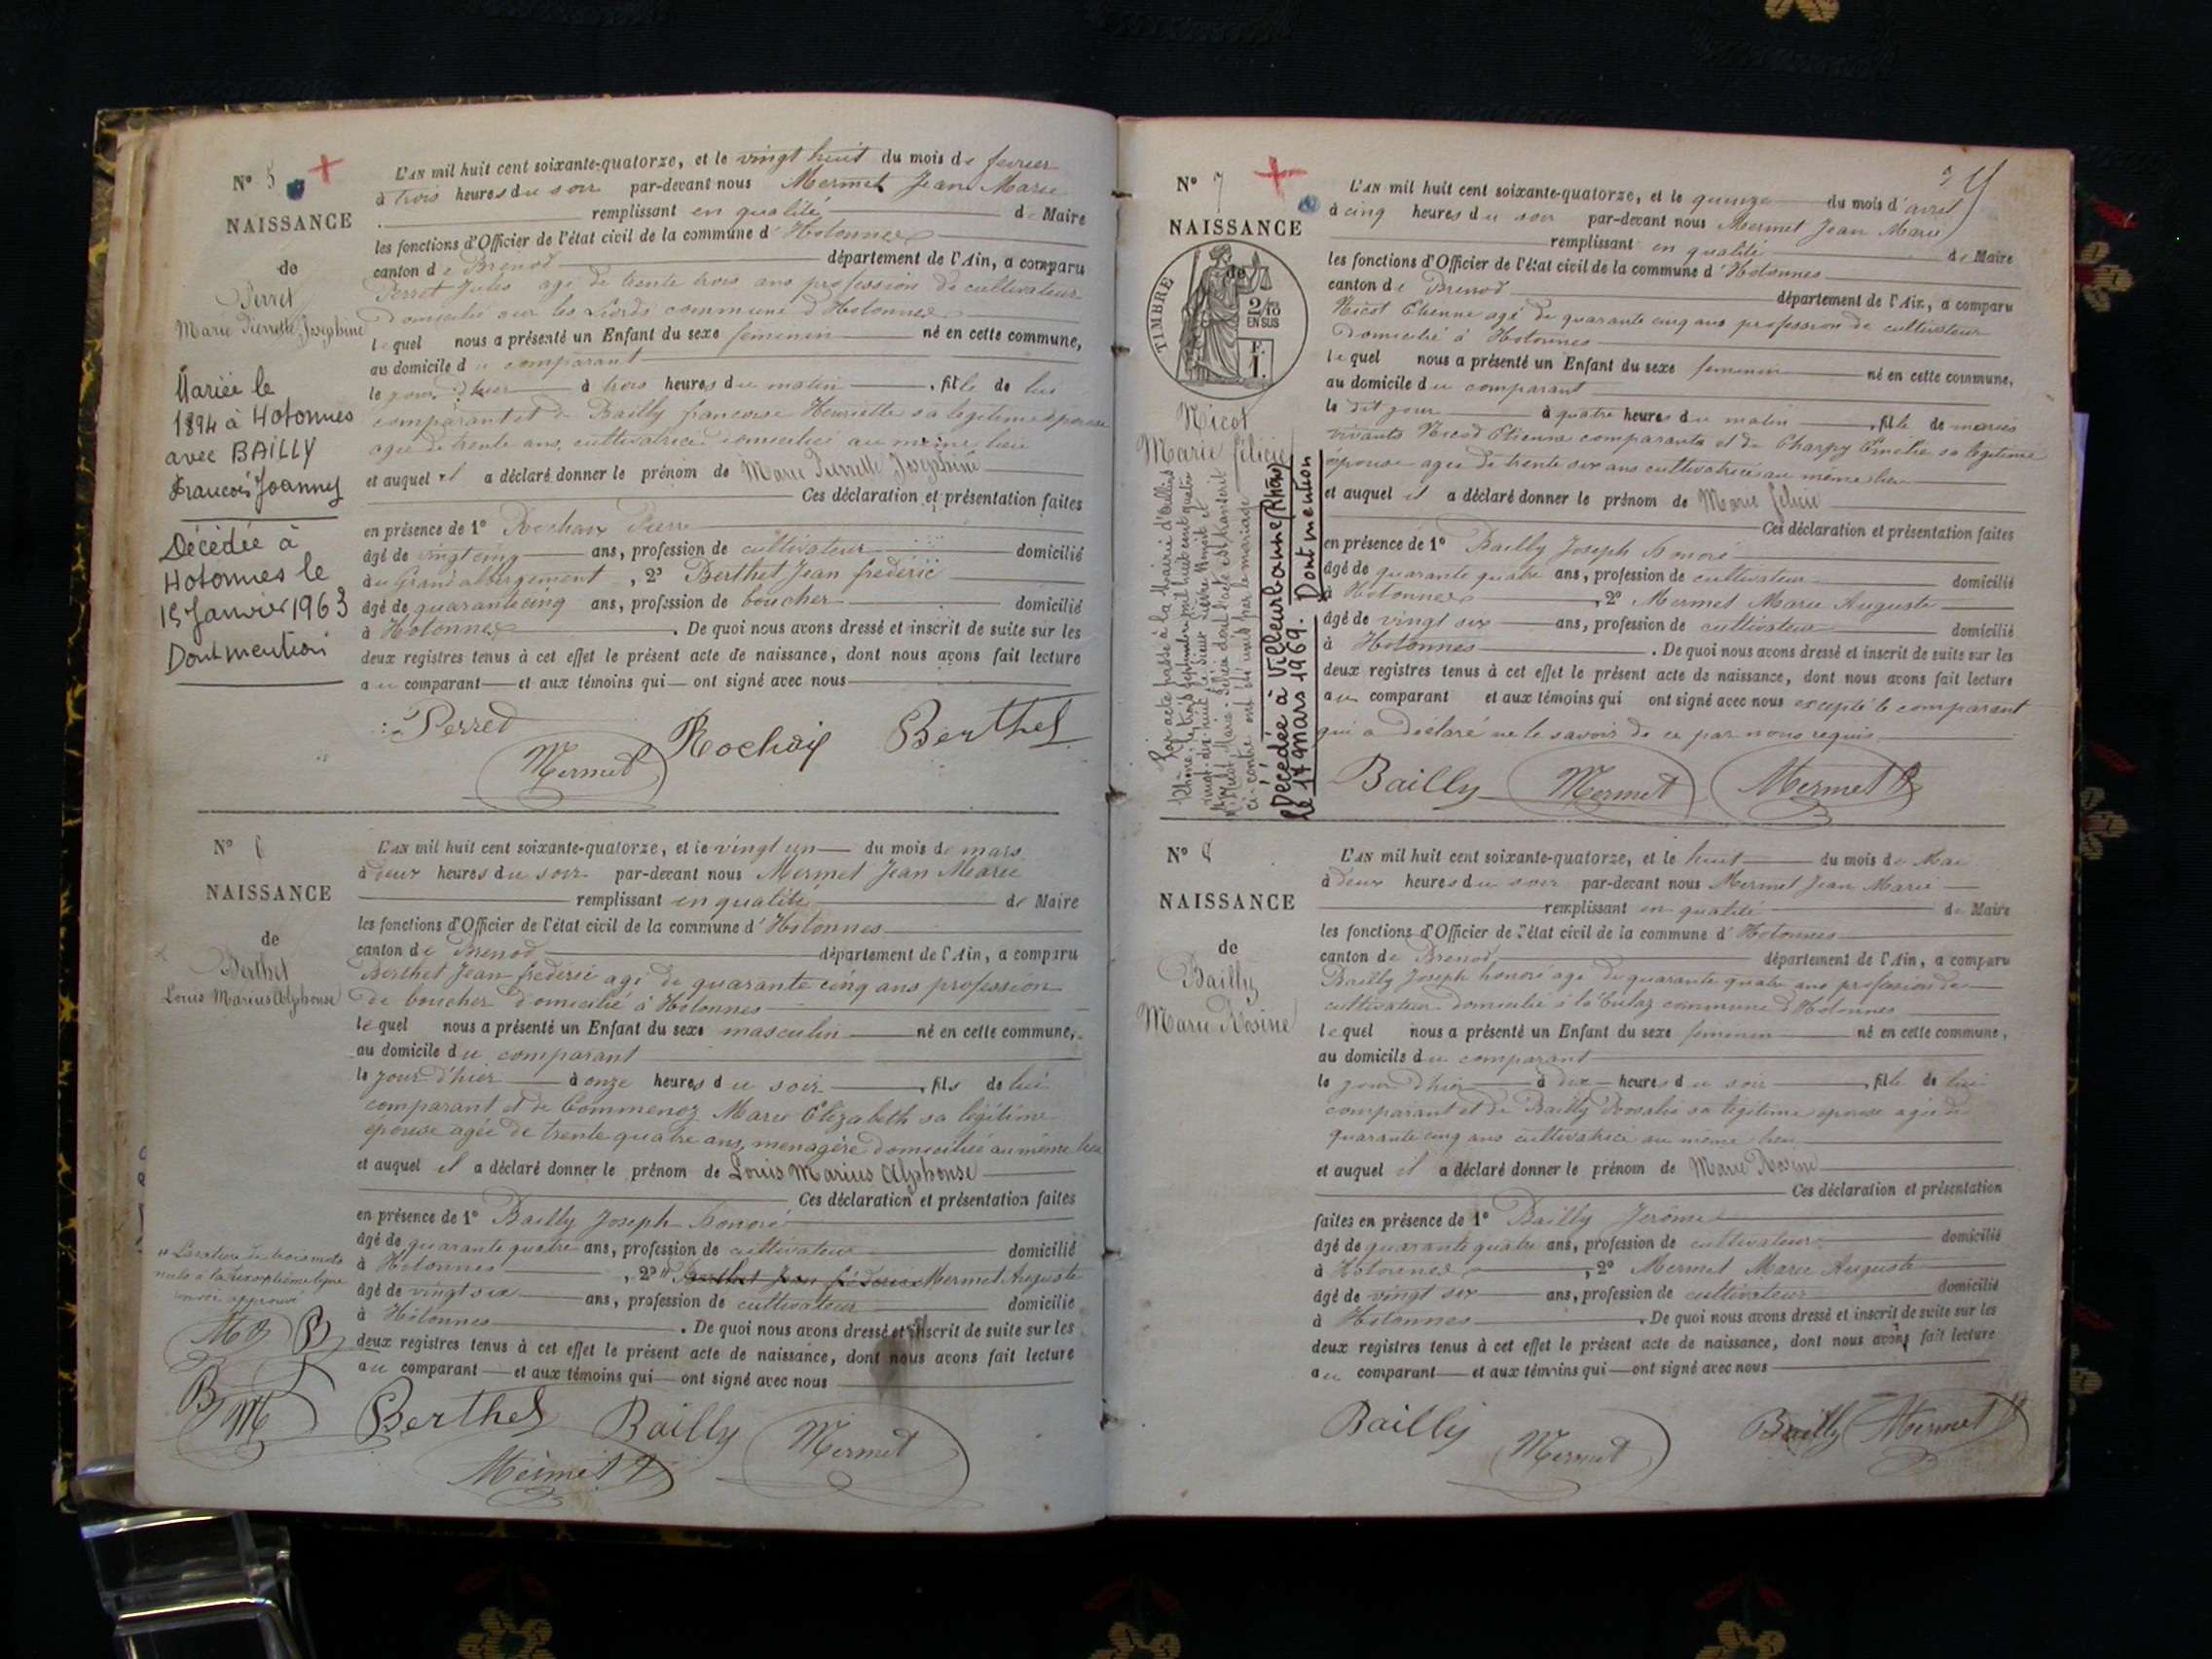 N° 5
NAISSANCE
de
Perret
Marie Pierrette Joséphine
Mariée le
1894 à Hotonnes
avec BAILLY
François Joanny
Décédée à
Hotonnes le
15 Janvier 1963
Dont mention
L'AN mil huit cent soixante-quatorze, et le vingt huit du mois de fevrier
à trois heures du soir par-devant nous Mermet Jean Marie
remplissant en qualité de Maire
les fonctions d'Officier de l'état civil de la commune d'Hotonnes
canton de Brenod département de l'Ain, a comparu
Perret Jules agé de trente trois ans profession de cultivateur
domicilié sur les Liords commune d'Hotonnes
lequel nous a présenté un Enfant du sexe feminin né en cette commune,
au domicile du comparant
le jour d'hier à trois heures du matin, fille de lui
comparant et de Bailly francoise Henriette sa legitime epouse
agée de trente ans, cultivatrice domiciliée au même lieu
et auquel il a déclaré donner le prénom de Marie Pierrette Joséphine
Ces déclaration et présentation faites
en présence de 1° Rochaix Pierre
âgé de vingt cinq ans, profession de cultivateur domicilié
au Grand abergement, 2° Berthet Jean frédéric
âgé de quarante cinq ans, profession de boucher domicilié
à Hotonnes. De quoi nous avons dressé et inscrit de suite sur les
deux registres tenus à cet effet le présent acte de naissance, dont nous avons fait lecture
au comparant et aux témoins qui ont signé avec nous
Perret Rochaix Berthet
Mermet
N° 6
NAISSANCE
de
Berthet
Louis Marius Alphonse
L'AN mil huit cent soixante-quatorze, et le vingt un du mois de mars
à deux heures du soir par-devant nous Mermet Jean Marie
remplissant en qualité de Maire
les fonctions d'Officier de l'état civil de la commune d'Hotonnes
canton de Brenod département de l'Ain, a comparu
Berthet Jean frédéric agé de quarante cinq ans profession
de boucher domicilié à Hotonnes
lequel nous a présenté un Enfant du sexe masculin né en cette commune,
au domicile du comparant
le jour d'hier à onze heures du soir, fils de lui
comparant et de Commenoz Marie Elizabeth sa légitime
épouse agée de trente quatre ans, menagère domiciliée au même lieu
et auquel il a déclaré donner le prénom de Louis Marius Alphonse
Ces déclaration et présentation faites
en présence de 1° Bailly Joseph honoré
âgé de quarante quatre ans, profession de cultivateur domicilié
à Hotonnes, 2° Berthet Jean frédéric Mermet Auguste
âgé de vingt six ans, profession de cultivateur domicilié
à Hotonnes. De quoi nous avons dressé et inscrit de suite sur les
deux registres tenus à cet effet le présent acte de naissance, dont nous avons fait lecture
au comparant et aux témoins qui ont signé avec nous
La rature de trois mots
nuls à la
approuvé
Berthet Bailly Mermet
Mermet
N° 7
NAISSANCE
de
TIMBRE
2/10
EN SUS
F.
1.
Nicot
Marie félicie
Par acte passé à la Mairie d'Oullins
Rhône, le trois septembre mil huit cent quatre
vingt dix huit le sieur
Nicot Marie félicie dont l'acte est
ci-contre ont été unis par le mariage
Décédée à Villeurbanne (Rhône)
le 17 mars 1969. Dont mention
L'AN mil huit cent soixante-quatorze, et le quinze du mois d'avril
à cinq heures du soir par-devant nous Mermet Jean Marie
remplissant en qualité de Maire
les fonctions d'Officier de l'état civil de la commune d'Hotonnes
canton de Brenod département de l'Ain, a comparu
Nicot Etienne agé de quarante cinq ans profession de cultivateur
domicilié à Hotonnes
lequel nous a présenté un Enfant du sexe feminin né en cette commune,
au domicile du comparant
le dit jour à quatre heures du matin, fille de maries
vivants Nicod Etienne comparants et de Charpy Emélie sa légitime
épouse agée de trente six ans cultivatrice au même lieu
et auquel il a déclaré donner le prénom de Marie félicie
Ces déclaration et présentation faites
en présence de 1° Bailly Joseph honoré
âgé de quarante quatre ans, profession de cultivateur domicilié
à Hotonnes, 2° Mermet Marie Auguste
âgé de vingt six ans, profession de cultivateur domicilié
à Hotonnes. De quoi nous avons dressé et inscrit de suite sur les
deux registres tenus à cet effet le présent acte de naissance, dont nous avons fait lecture
au comparant et aux témoins qui ont signé avec nous excepté le comparant
qui a déclaré ne le savoir de ce par nous requis
Bailly Mermet Mermet
N° 8
NAISSANCE
de
Bailly
Marie Rosine
L'AN mil huit cent soixante-quatorze, et le huit du mois de Mai
à deux heures du soir par-devant nous Mermet Jean Marie
remplissant en qualité de Maire
les fonctions d'Officier de l'état civil de la commune d'Hotonnes
canton de Brenod département de l'Ain, a comparu
Bailly Joseph honoré agé de quarante quatre ans profession de
cultivateur domicilié à commune d'Hotonnes
lequel nous a présenté un Enfant du sexe feminin né en cette commune,
au domicile du comparant
le jour d'hier à dix heures du soir, fille de lui
comparant et de Bailly sa légitime epouse agée de
quarante cinq ans cultivatrice au même lieu
et auquel il a déclaré donner le prénom de Marie Rosine
Ces déclaration et présentation
faites en présence de 1° Bailly Jerôme
âgé de quarante quatre ans, profession de cultivateur domicilié
à Hotonnes, 2° Mermet Marie Auguste
âgé de vingt six ans, profession de cultivateur domicilié
à Hotonnes. De quoi nous avons dressé et inscrit de suite sur les
deux registres tenus à cet effet le présent acte de naissance, dont nous avons fait lecture
au comparant et aux témoins qui ont signé avec nous
Bailly Mermet Bailly Mermet